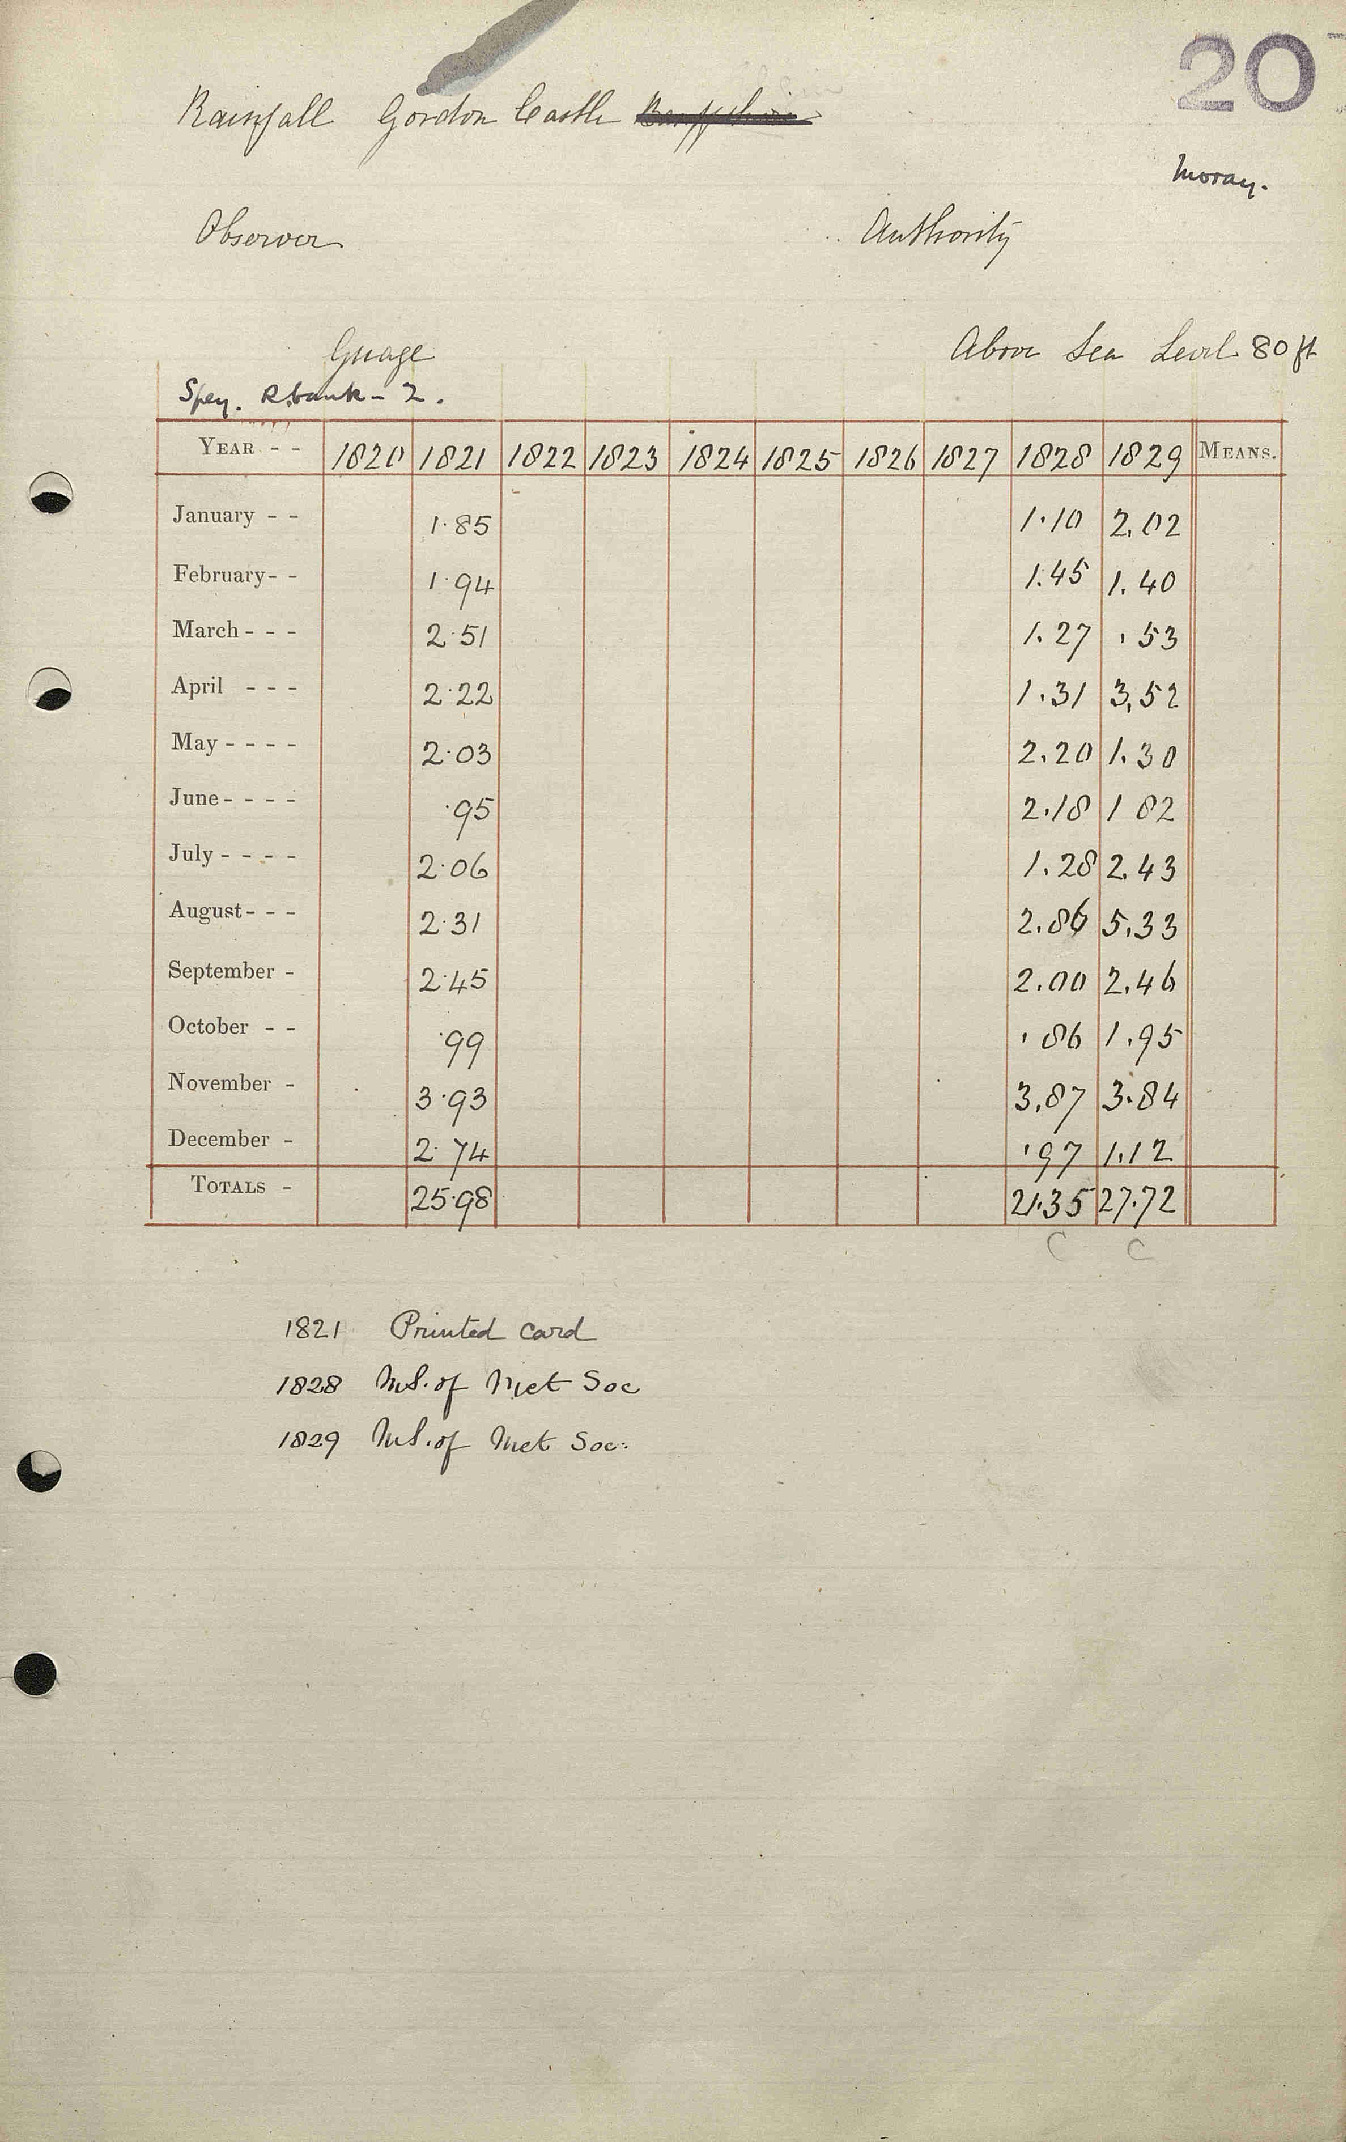 20
Rainfall Gordon Castle Banffshire
Moray.
Observer Authority
Guage Above Sea Level 80 ft
Spey. R. bank - 2.
YEAR - - 1820 1821 1822 1823 1824 1825 1826 1827 1828 1829 MEANS.
January - - 1.85 1.10 2.02
February - - 1.94 1.45 1.40
March - - - 2.51 1.27 .53
April - - - 2.22 1.31 3.52
May - - - - 2.03 2.20 1.30
June - - - - .95 2.18 1 82
July - - - - 2.06 1.28 2.43
August - - - 2.31 2.86 5.33
September - 2.45 2.00 2.46
October - - .99 .86 1.95
November - 3.93 3.87 3.84
December - 2.74 .97 1.12
TOTALS - 25.98 21.35 27.72
C C
1821 Printed card
1828 MS. of Met Soc
1829 MS. of Met Soc.